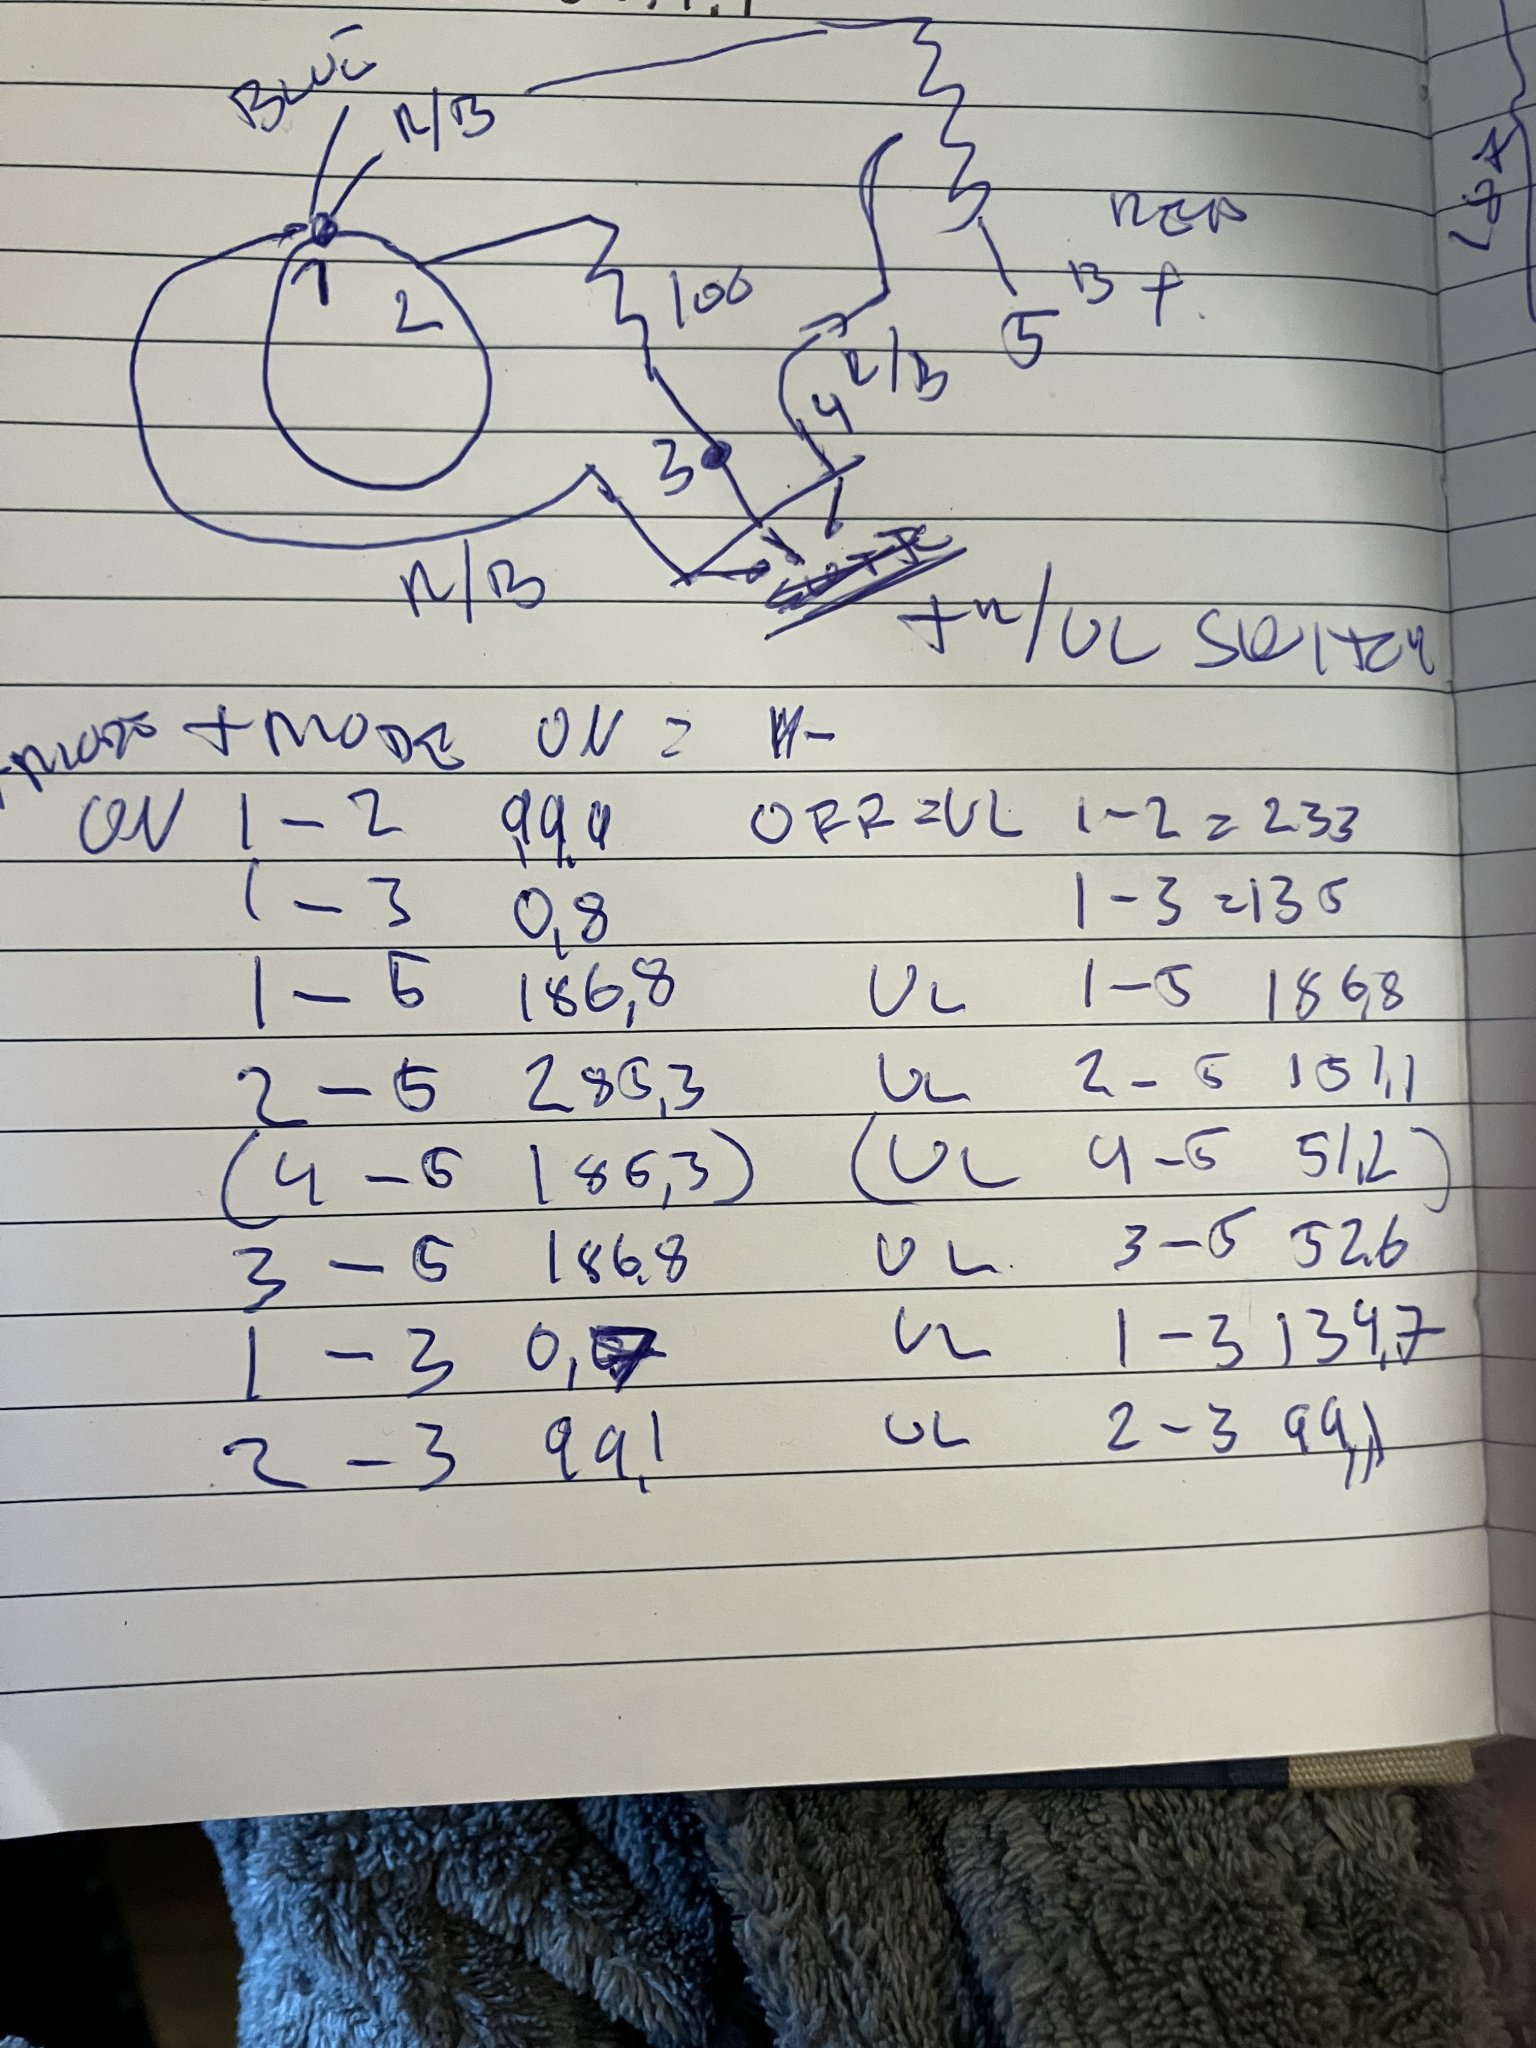 BLUE
R/B
RED
B+
1
2
100
R/B
5
4
3
R/B
TR/UL SWITCH
TMODE ON =
ON 1-2 99,4 OFF=UL 1-2=233
1-3 0,8 1-3=135
1-5 186,8 UL 1-5 186,8
2-5 285,3 UL 2-5 151,1
(4-5 186,3) (UL 4-5 51,2)
3-5 186,8 UL 3-5 52,6
1-3 0,7 UL 1-3 134,7
2-3 99,1 UL 2-3 99,1